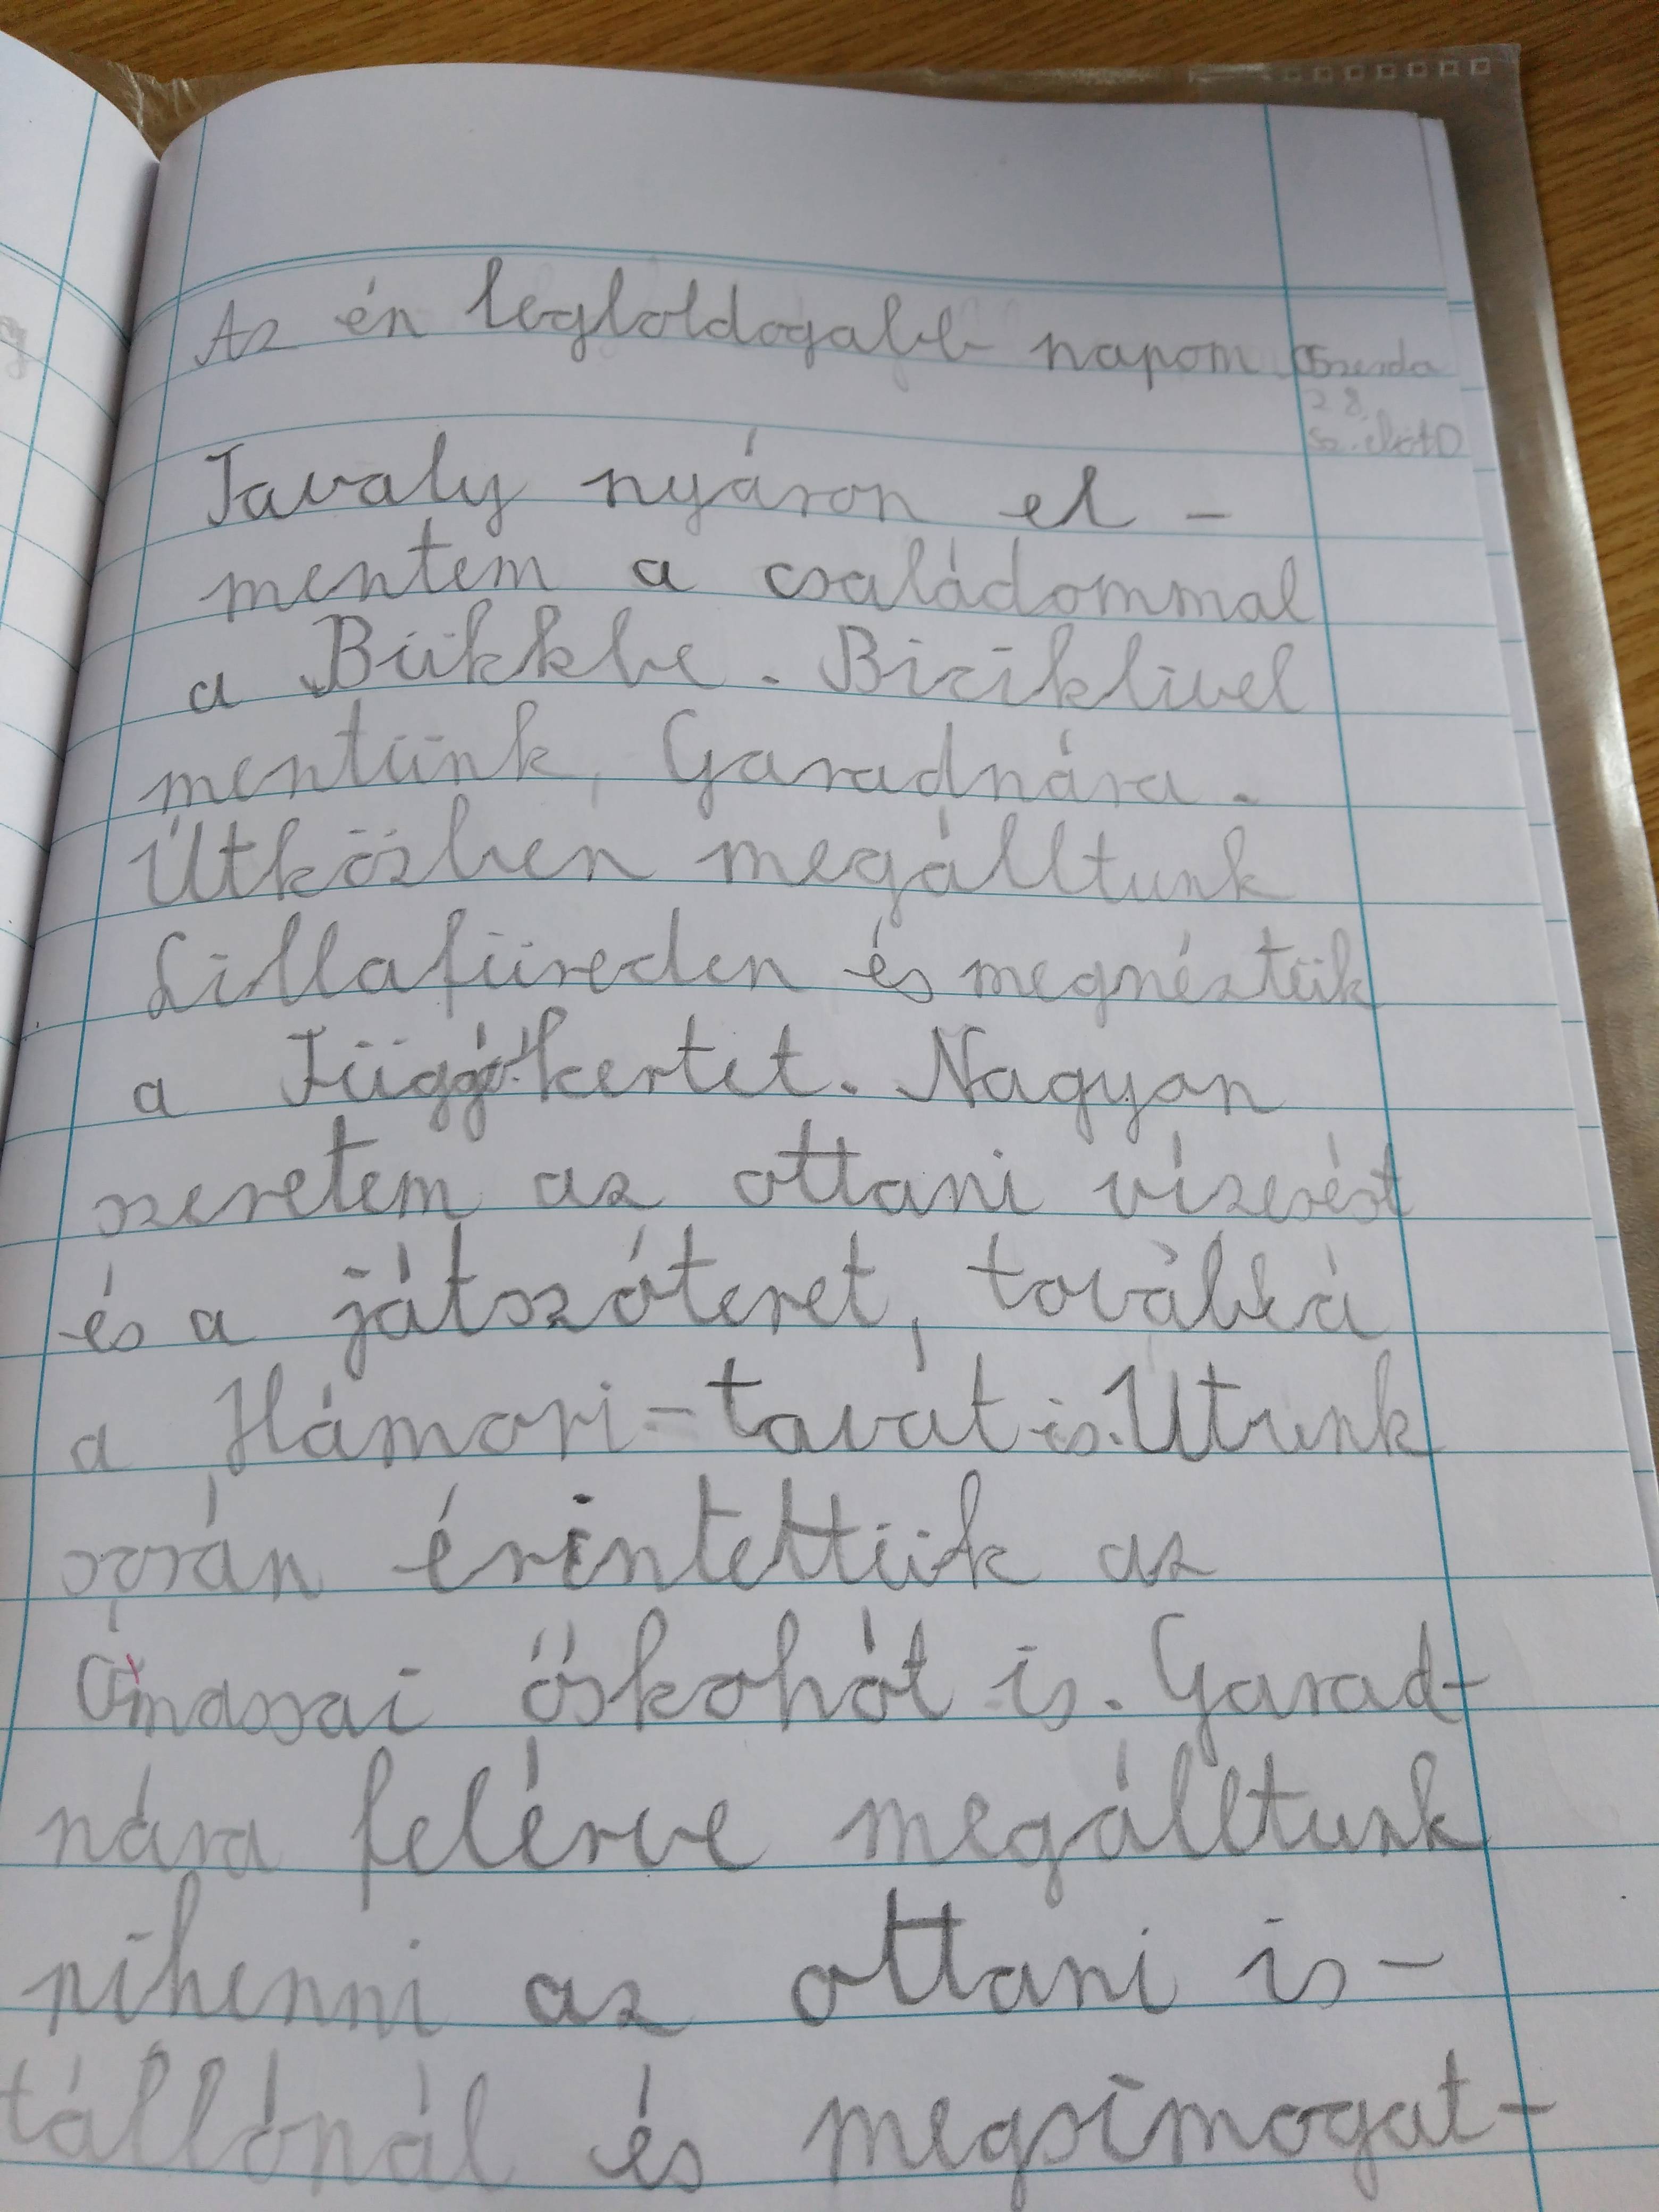 Az én legboldogabb napom
Szerda
28.
Tavaly nyáron el-
mentem a családommal
a Bükkbe. Biciklivel
mentünk, Garadnára.
Útközben megálltunk
Lillafüreden és megnéztük
a Függőkertet. Nagyon
szeretem az ottani vízesést
és a játszóteret, továbbá
a Hámori-tavat is. Utunk
során érintettük az
Ómassai őskohót is. Garad-
nára felérve megálltunk
pihenni az ottani is-
tállónál és megsimogat-